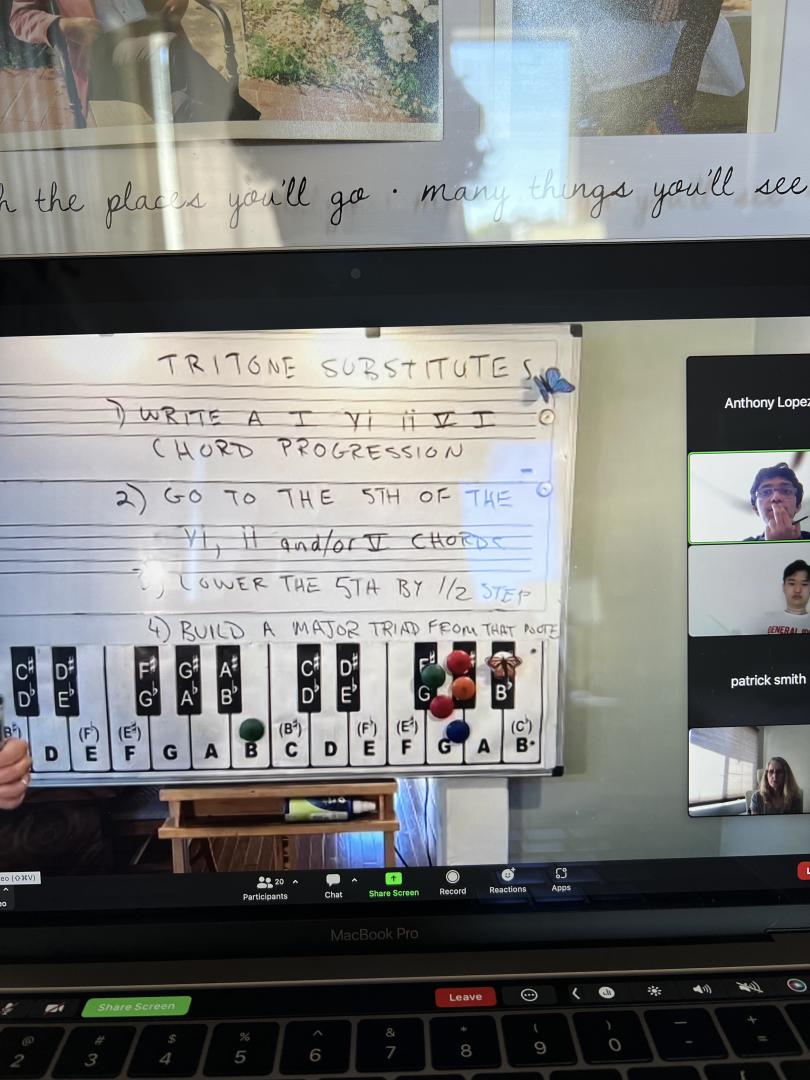 the places you'll go · many things you'll see
TRITONE SUBSTITUTES
1) WRITE A I vi ii V I
CHORD PROGRESSION
2) GO TO THE 5TH OF THE
vi, ii and/or V CHORDS
LOWER THE 5TH BY 1/2 STEP
4) BUILD A MAJOR TRIAD FROM THAT NOTE
C# D# F# G# A# C# D#
Db Eb Gb Ab Bb Db Eb G Bb
(Fb) (E#) (B#) (Fb) (E#) (Cb)
D E F G A B C D E F G A B
Anthony Lopez
GENERAL
patrick smith
(⇧⌘V)
20
Participants
Chat
Share Screen
Record
Reactions
Apps
MacBook Pro
Share Screen
Leave
@ # $ % ^ & * ( ) — +
2 3 4 5 6 7 8 9 0 - =